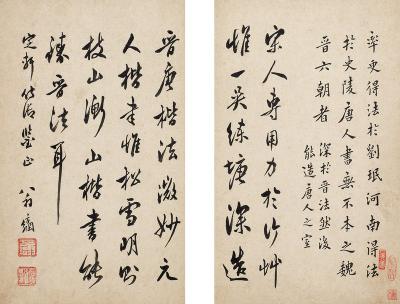 率更得法於劉珉河南得法
於史陵唐人書無不本之魏
晉六朝者
深於晉法然後
能造唐人之室
宋人專用力於行艸
惟一吳練塘深造
晉唐楷法微妙元
人楷書惟松雪明則
枝山衡山楷書能
臻晉法耳
定軒侍御鑒正